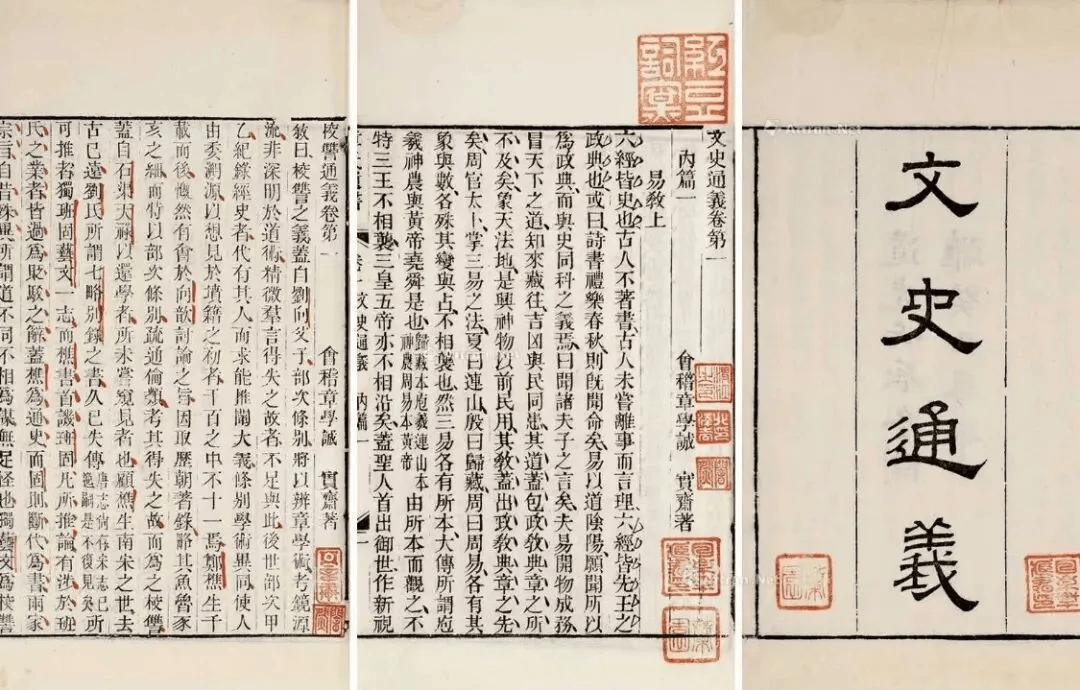 文史通義
文史通義卷第一
內篇一
會稽章學誠 實齋著
易教上
六經皆史也古人不著書古人未嘗離事而言理六經皆先王之
政典也或曰詩書禮樂春秋則既聞命矣易以道陰陽願聞所以
爲政典而與史同科之義焉曰聞諸夫子之言矣夫易開物成務
冒天下之道知來藏往吉凶與民同患其道蓋包政教典章之所
不及矣象天法地是興神物以前民用其教蓋出政教典章之先
矣周官太卜掌三易之法夏曰連山殷曰歸藏周曰周易各有其
象與數各殊其變與占不相襲也然三易各有所本大傳所謂庖
羲神農與黃帝堯舜是也歸藏本庖羲連山本神農周易本黃帝由所本而觀之不
特三王不相襲三皇五帝亦不相沿矣蓋聖人首出御世作新視
校讐通義卷第一
會稽章學誠 實齋著
敘曰校讐之義蓋自劉向父子部次條別將以辨章學術考鏡源
流非深明於道術精微羣言得失之故者不足與此後世部次甲
乙紀錄經史者代有其人而求能推闡大義條別學術異同使人
由委溯源以想見於墳籍之初者千百之中不十一焉鄭樵生千
載而後慨然有會於向歆討論之旨因取歷朝著錄略其魚魯豕
亥之細而特以部次條別疏通倫類考其得失之故而爲之校讐
蓋自石渠天祿以還學者所未嘗窺見者也顧樵生南宋之世去
古已遠劉氏所謂七略別錄之書久已失傳唐志尚有宋志已逸嗣是不復見矣所
可推者獨班固藝文一志而樵書首譏班固凡所推論有涉於班
氏之業者皆過爲貶駁之辭蓋樵爲通史而固則斷代爲書兩家
宗旨自昔殊異所謂道不同不相爲謀無足怪也獨藝文爲校讐